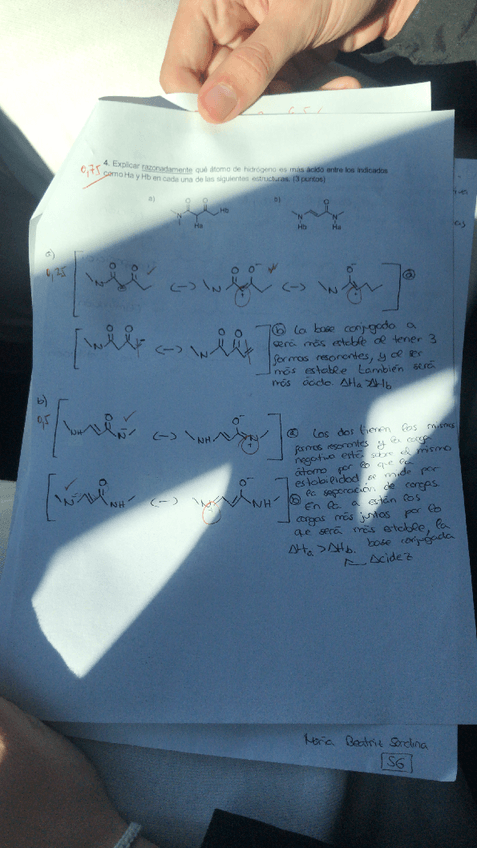 0,75
4. Explicar razonadamente qué átomo de hidrógeno es más ácido entre los indicados
como Ha y Hb en cada una de las siguientes estructuras. (3 puntos)
a)
b)
Ha
Hb
Hb
Ha
a)
0,25
a
b La base conjugada a
será más estable al tener 3
formas resonantes, y al ser
más estable también será
más ácido. ΔHa > ΔHb
b)
0,5
a Los dos tienen las mismas
formas resonantes y la carga
negativa está sobre el mismo
átomo por lo que la
estabilidad se mide por
la separación de cargas.
b En la a están las
cargas más juntas por lo
que será más estable, la
ΔHa > ΔHb. base conjugada
Acidez
María Beatriz
56